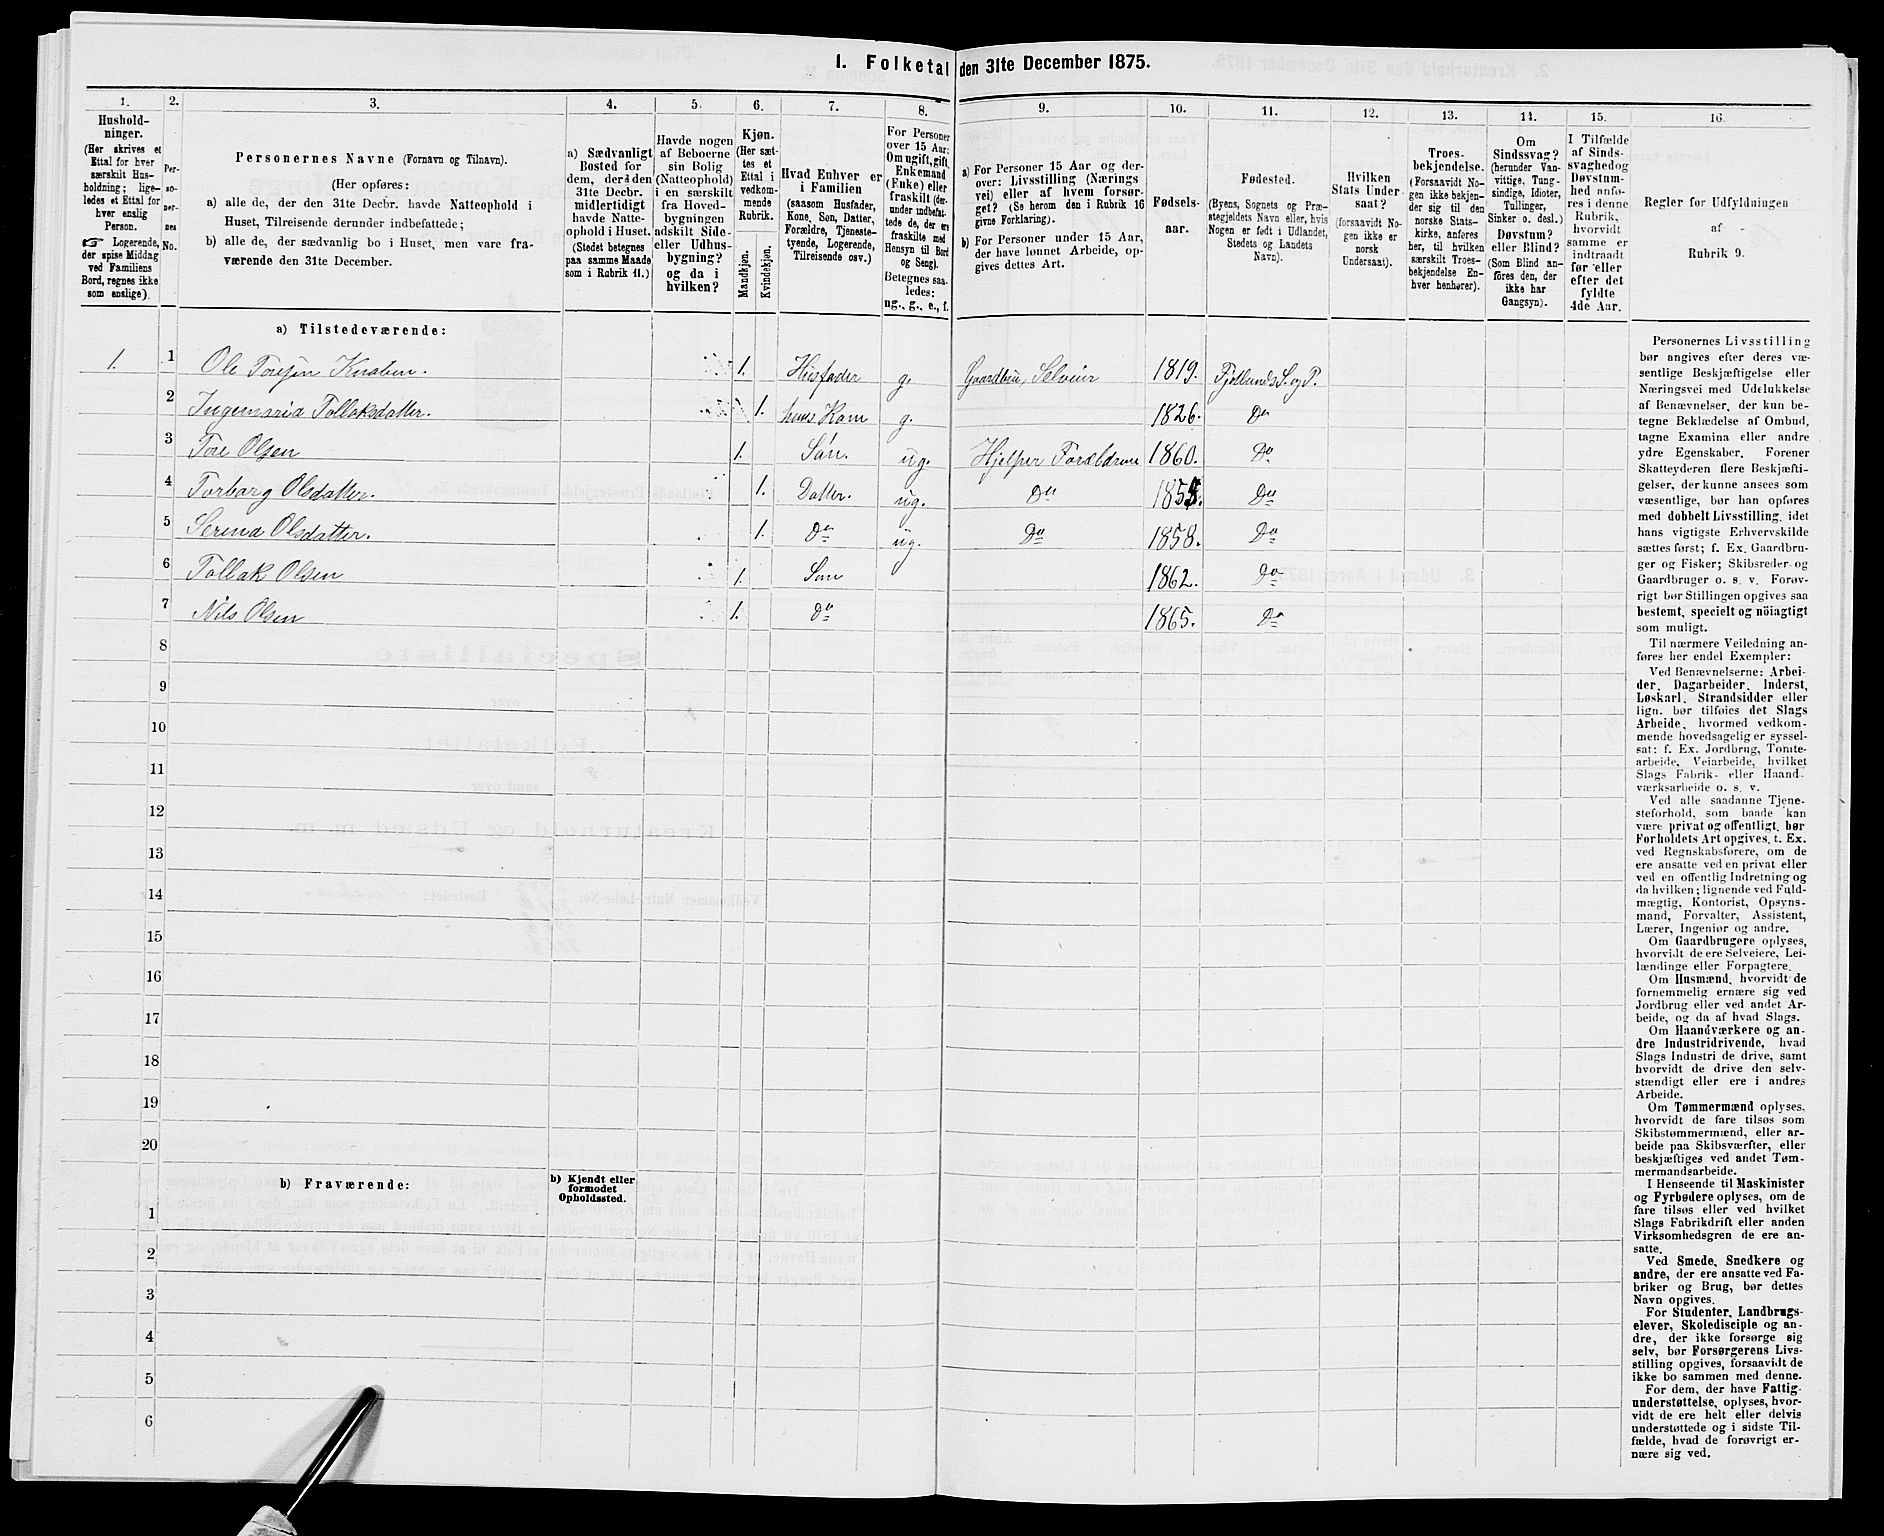 I. Folketal den 31te December 1875.
1. 2. 3. 4. 5. 6. 7. 8. 9. 10. 11. 12. 13. 14. 15. 16.
Hushold-
ninger.
(Her skrives et
Ettal for hver
særskilt Hus-
holdning; lige-
ledes et Ettal for
hver enslig
Person.
☞ Logerende,
der spise Middag
ved Familiens
Bord, regnes ikke
som enslige).
Per-
so-
ner-
nes
No.
Personernes Navne (Fornavn og Tilnavn).
(Her opføres:
a) alle de, der den 31te Decbr. havde Natteophold i
Huset, Tilreisende derunder indbefattede;
b) alle de, der sædvanlig bo i Huset, men vare fra-
værende den 31te December.
a) Sædvanligt
Bosted for
dem, der den
31te Decbr.
midlertidigt
havde Natte-
ophold i Huset.
(Stedet betegnes
paa samme Maade
som i Rubrik 11.)
Havde nogen
af Beboerne
sin Bolig
(Natteophold)
i en særskilt
fra Hoved-
bygningen
adskilt Side-
eller Udhus-
bygning?
og da i
hvilken?
Kjøn.
(Her sæt-
tes et
Ettal i
vedkom-
mende
Rubrik.
Mandkjøn.
Kvindekjøn.
Hvad Enhver er
i Familien
(saasom Husfader,
Kone, Søn, Datter,
Forældre, Tjeneste-
tyende, Logerende,
Tilreisende osv.)
For Personer
over 15 Aar:
Om ugift, gift,
Enkemand
(Enke) eller
fraskilt (der-
under indbefat-
tede de, der ere
fraskilte med
Hensyn til Bord
og Seng).
Betegnes saa-
ledes:
ug., g., e., f.
a) For Personer 15 Aar og der-
over: Livsstilling (Nærings
vei) eller af hvem forsør-
get? (Se herom den i Rubrik 16
givne Forklaring).
b) For Personer under 15 Aar,
der have lønnet Arbeide, op-
gives dettes Art.
Fødsels-
aar.
Fødested.
(Byens, Sognets og Præ-
stegjeldets Navn eller, hvis
Nogen er født i Udlandet,
Stedets og Landets
Navn).
Hvilken
Stats Under-
saat?
(forsaavidt No-
gen ikke er
norsk
Undersaat).
Troes-
bekjendelse.
(Forsaavidt No-
gen ikke bekjen-
der sig til den
norske Stats-
kirke, anføres
her, til hvilken
særskilt Troes-
bekjendelse En-
hver henhører).
Om
Sindssvag?
(herunder Van-
vittige, Tung-
sindige, Idioter,
Tullinger,
Sinker o. desl.)
Døvstum?
eller Blind?
(Som Blind an-
føres den, der
ikke har
Gangsyn).
I Tilfælde
af Sinds-
svaghed og
Døvstum-
hed anfø-
res i denne
Rubrik,
hvorvidt
samme er
indtraadt
før eller
efter det
fyldte
4de Aar.
Regler for Udfyldningen
af
Rubrik 9.
a) Tilstedeværende:
1. 1 Ole Toresen Knaben. 1. Husfader g. Gaardbru. Selveier 1819. Fjotlands S. og P.
2 Ingemaria Tollaksdatter. 1. hans Kone g. 1826. Do
3 Tore Olsen 1. Søn. ug. Hjelper Forældrene 1860. Do
4 Torborg Olsdatter. 1. Datter. ug. Do Do
5 Serina Olsdatter. 1. Do ug. Do 1858. Do
6 Tollak Olsen 1. Søn 1862. Do
7 Nils Olsen 1. Do 1865. Do
8
9
10
11
12
13
14
15
16
17
18
19
20
b) Fraværende:
b) Kjendt eller
formodet
Opholdssted.
1
2
3
4
5
6
Personernes Livsstilling
bør angives efter deres væ-
sentlige Beskjæftigelse eller
Næringsvei med Udelukkelse
af Benævnelser, der kun be-
tegne Beklædelse af Ombud,
tagne Examina eller andre
ydre Egenskaber. Forener
Skatteyderen flere Beskjæfti-
gelser, der kunne ansees som
væsentlige, bør han opføres
med dobbelt Livsstilling, idet
hans vigtigste Erhvervskilde
sættes først; f. Ex. Gaardbru-
ger og Fisker; Skibsreder og
Gaardbruger o. s. v. Forøv-
rigt bør Stillingen opgives saa
bestemt, specielt og nöiagtigt
som muligt.
Til nærmere Veiledning an-
føres her endel Exempler:
Ved Benævnelserne: Arbei-
der, Dagarbeider, Inderst,
Løskarl, Strandsidder eller
lign. bør tilføies det Slags
Arbeide, hvormed vedkom-
mende hovedsagelig er syssel-
sat: f. Ex. Jordbrug, Tomte-
arbeide, Veiarbeide, hvilket
Slags Fabrik- eller Haand-
værksarbeide o. s. v.
Ved alle saadanne Tjene-
steforhold, som baade kan
være privat og offentligt, bør
Forholdets Art opgives, t. Ex.
ved Regnskabsførere, om de
ere ansatte ved en privat eller
ved en offentlig Indretning og
da hvilken; lignende ved Fuld-
mægtig, Kontorist, Opsyns-
mand, Forvalter, Assistent,
Lærer, Ingeniør og andre.
Om Gaardbrugere oplyses,
hvorvidt de ere Selveiere, Lei-
lændinge eller Forpagtere.
Om Husmænd, hvorvidt de
fornemmelig ernære sig ved
Jordbrug eller ved andet Ar-
beide, og da af hvad Slags.
Om Haandværkere og an-
dre Industridrivende, hvad
Slags Industri de drive, samt
hvorvidt de drive den selv-
stændigt eller ere i andres
Arbeide.
Om Tømmermænd oplyses,
hvorvidt de fare tilsøs som
Skibstømmermænd, eller ar-
beide paa Skibsværfter, eller
beskjæftiges ved andet Tøm-
mermandsarbeide.
I Henseende til Maskinister
og Fyrbødere oplyses, om de
fare tilsøs eller ved hvilket
Slags Fabrikdrift eller anden
Virksomhedsgren de ere an-
satte.
Ved Smede, Snedkere og
andre, der ere ansatte ved Fa-
briker og Brug, bør dettes
Navn opgives.
For Studenter, Landbrugs-
elever, Skoledisciple og an-
dre, der ikke forsørge sig
selv, bør Forsørgerens Livs-
stilling opgives, forsaavidt de
ikke bo sammen med denne.
For dem, der have Fattig-
understøttelse, oplyses, hvor-
vidt de ere helt eller delvis
understøttede og i sidste Til-
fælde, hvad de forøvrigt er-
nære sig ved.